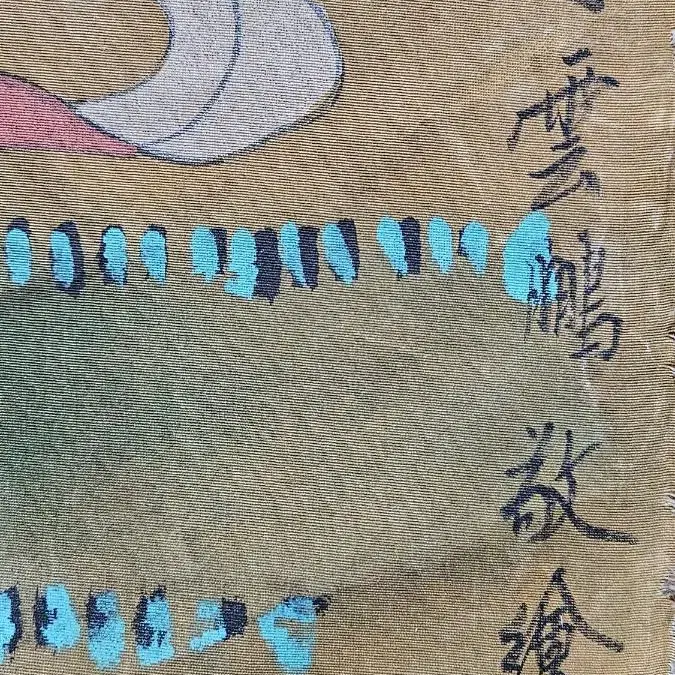 雲鵬敬繪